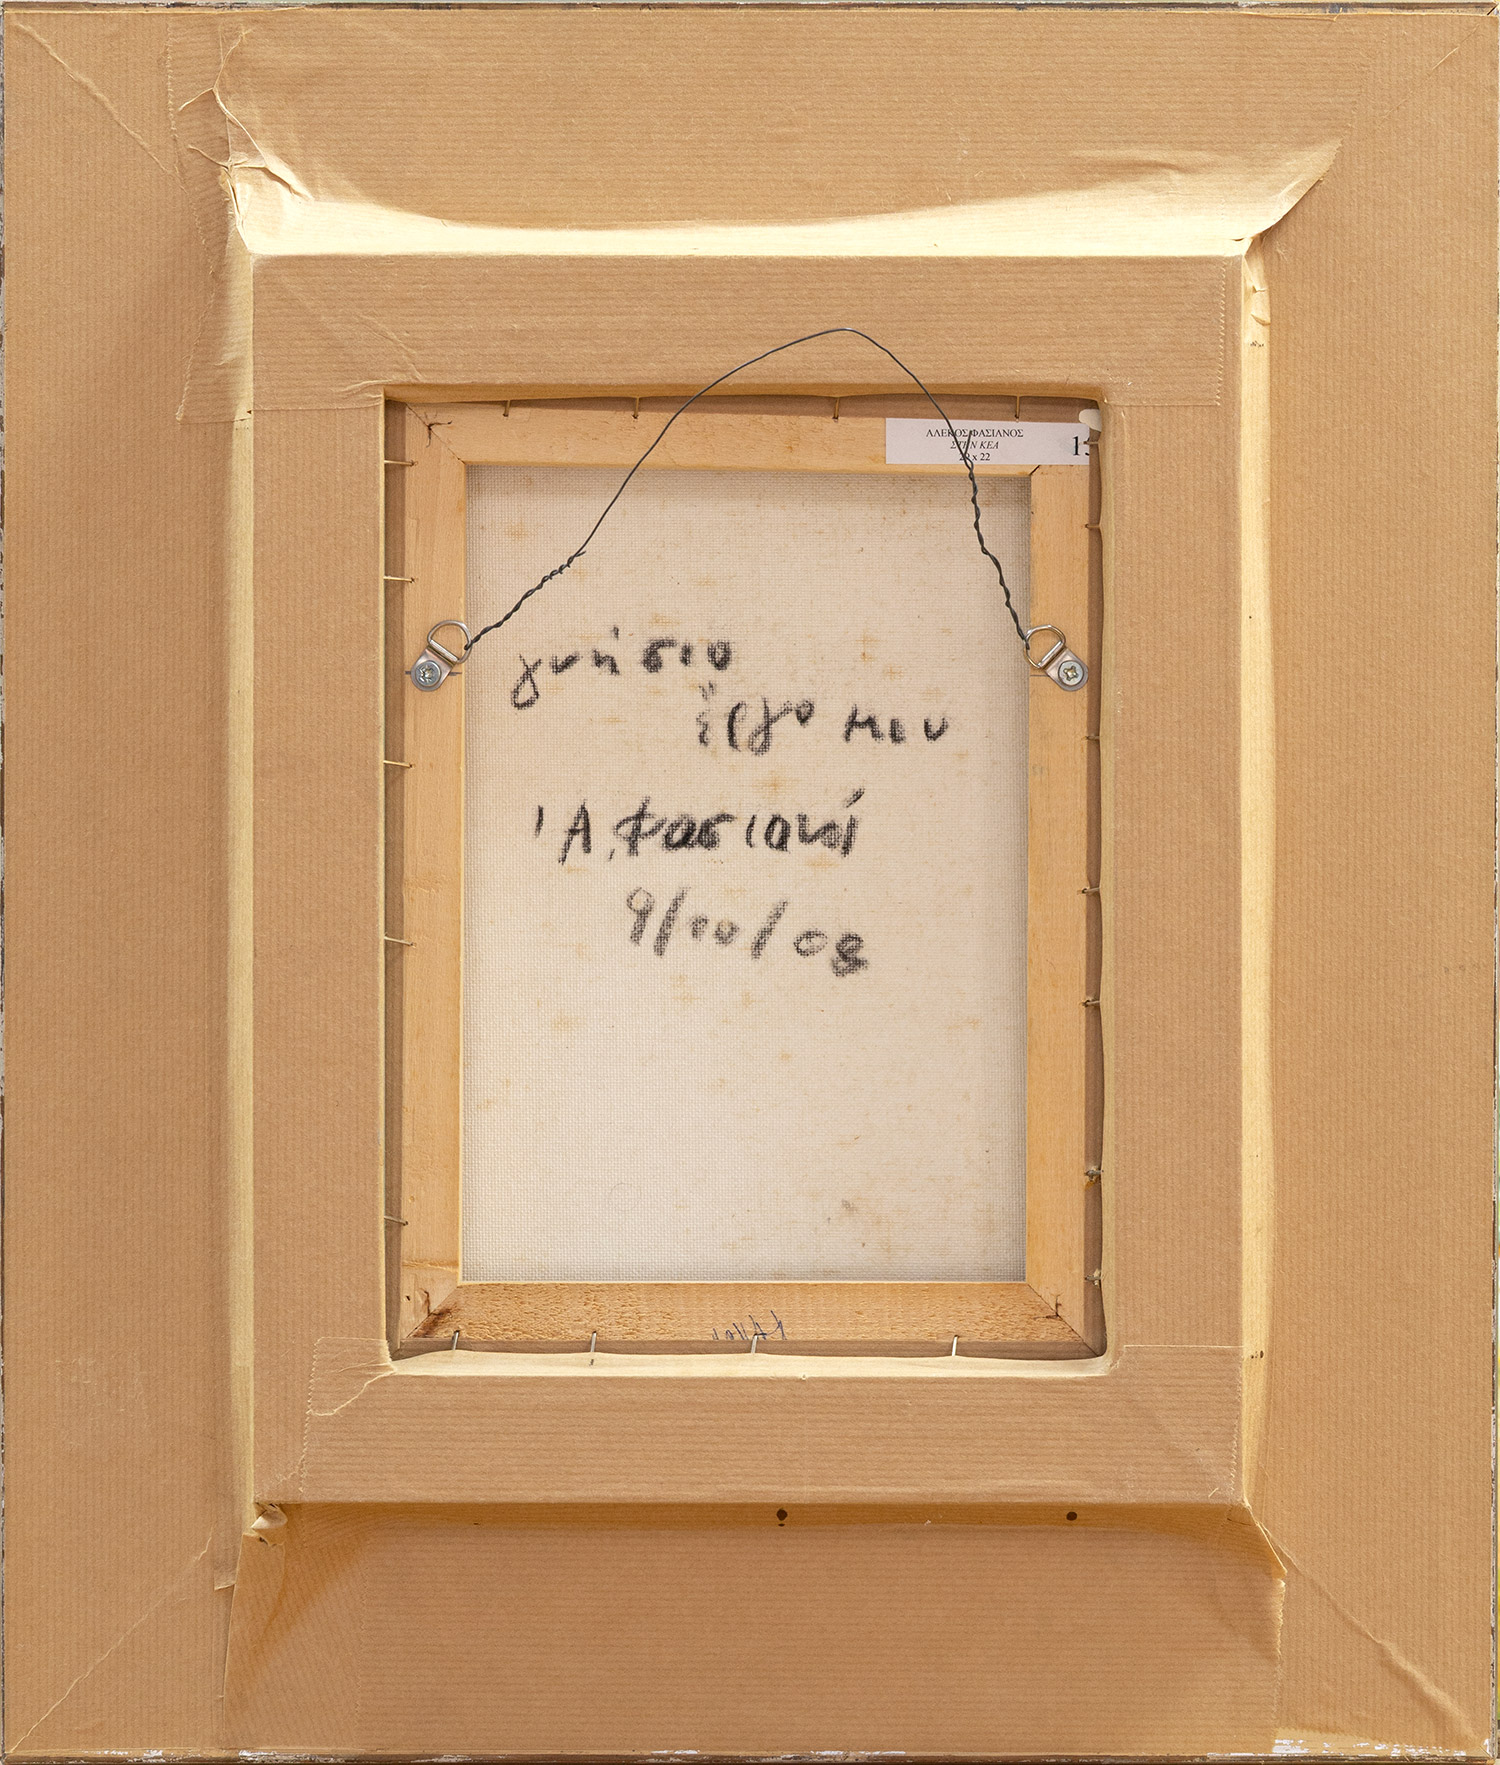 ΑΛΕΚΟΣ ΦΑΣΙΑΝΟΣ
ΣΤΗΝ ΚΕΑ
x 22
γνήσιο
έργο μου
Α. Φασιανός
9/10/08